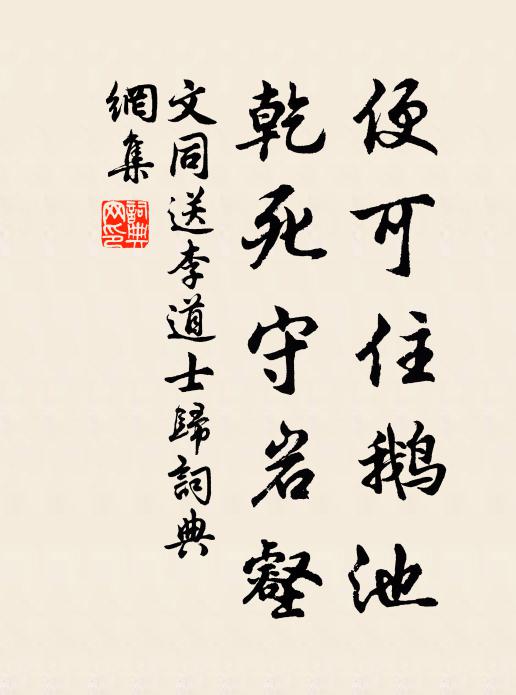 便可住鹅池
乾死守岩壑
文同送李道士歸詞典
網集
詞典網印